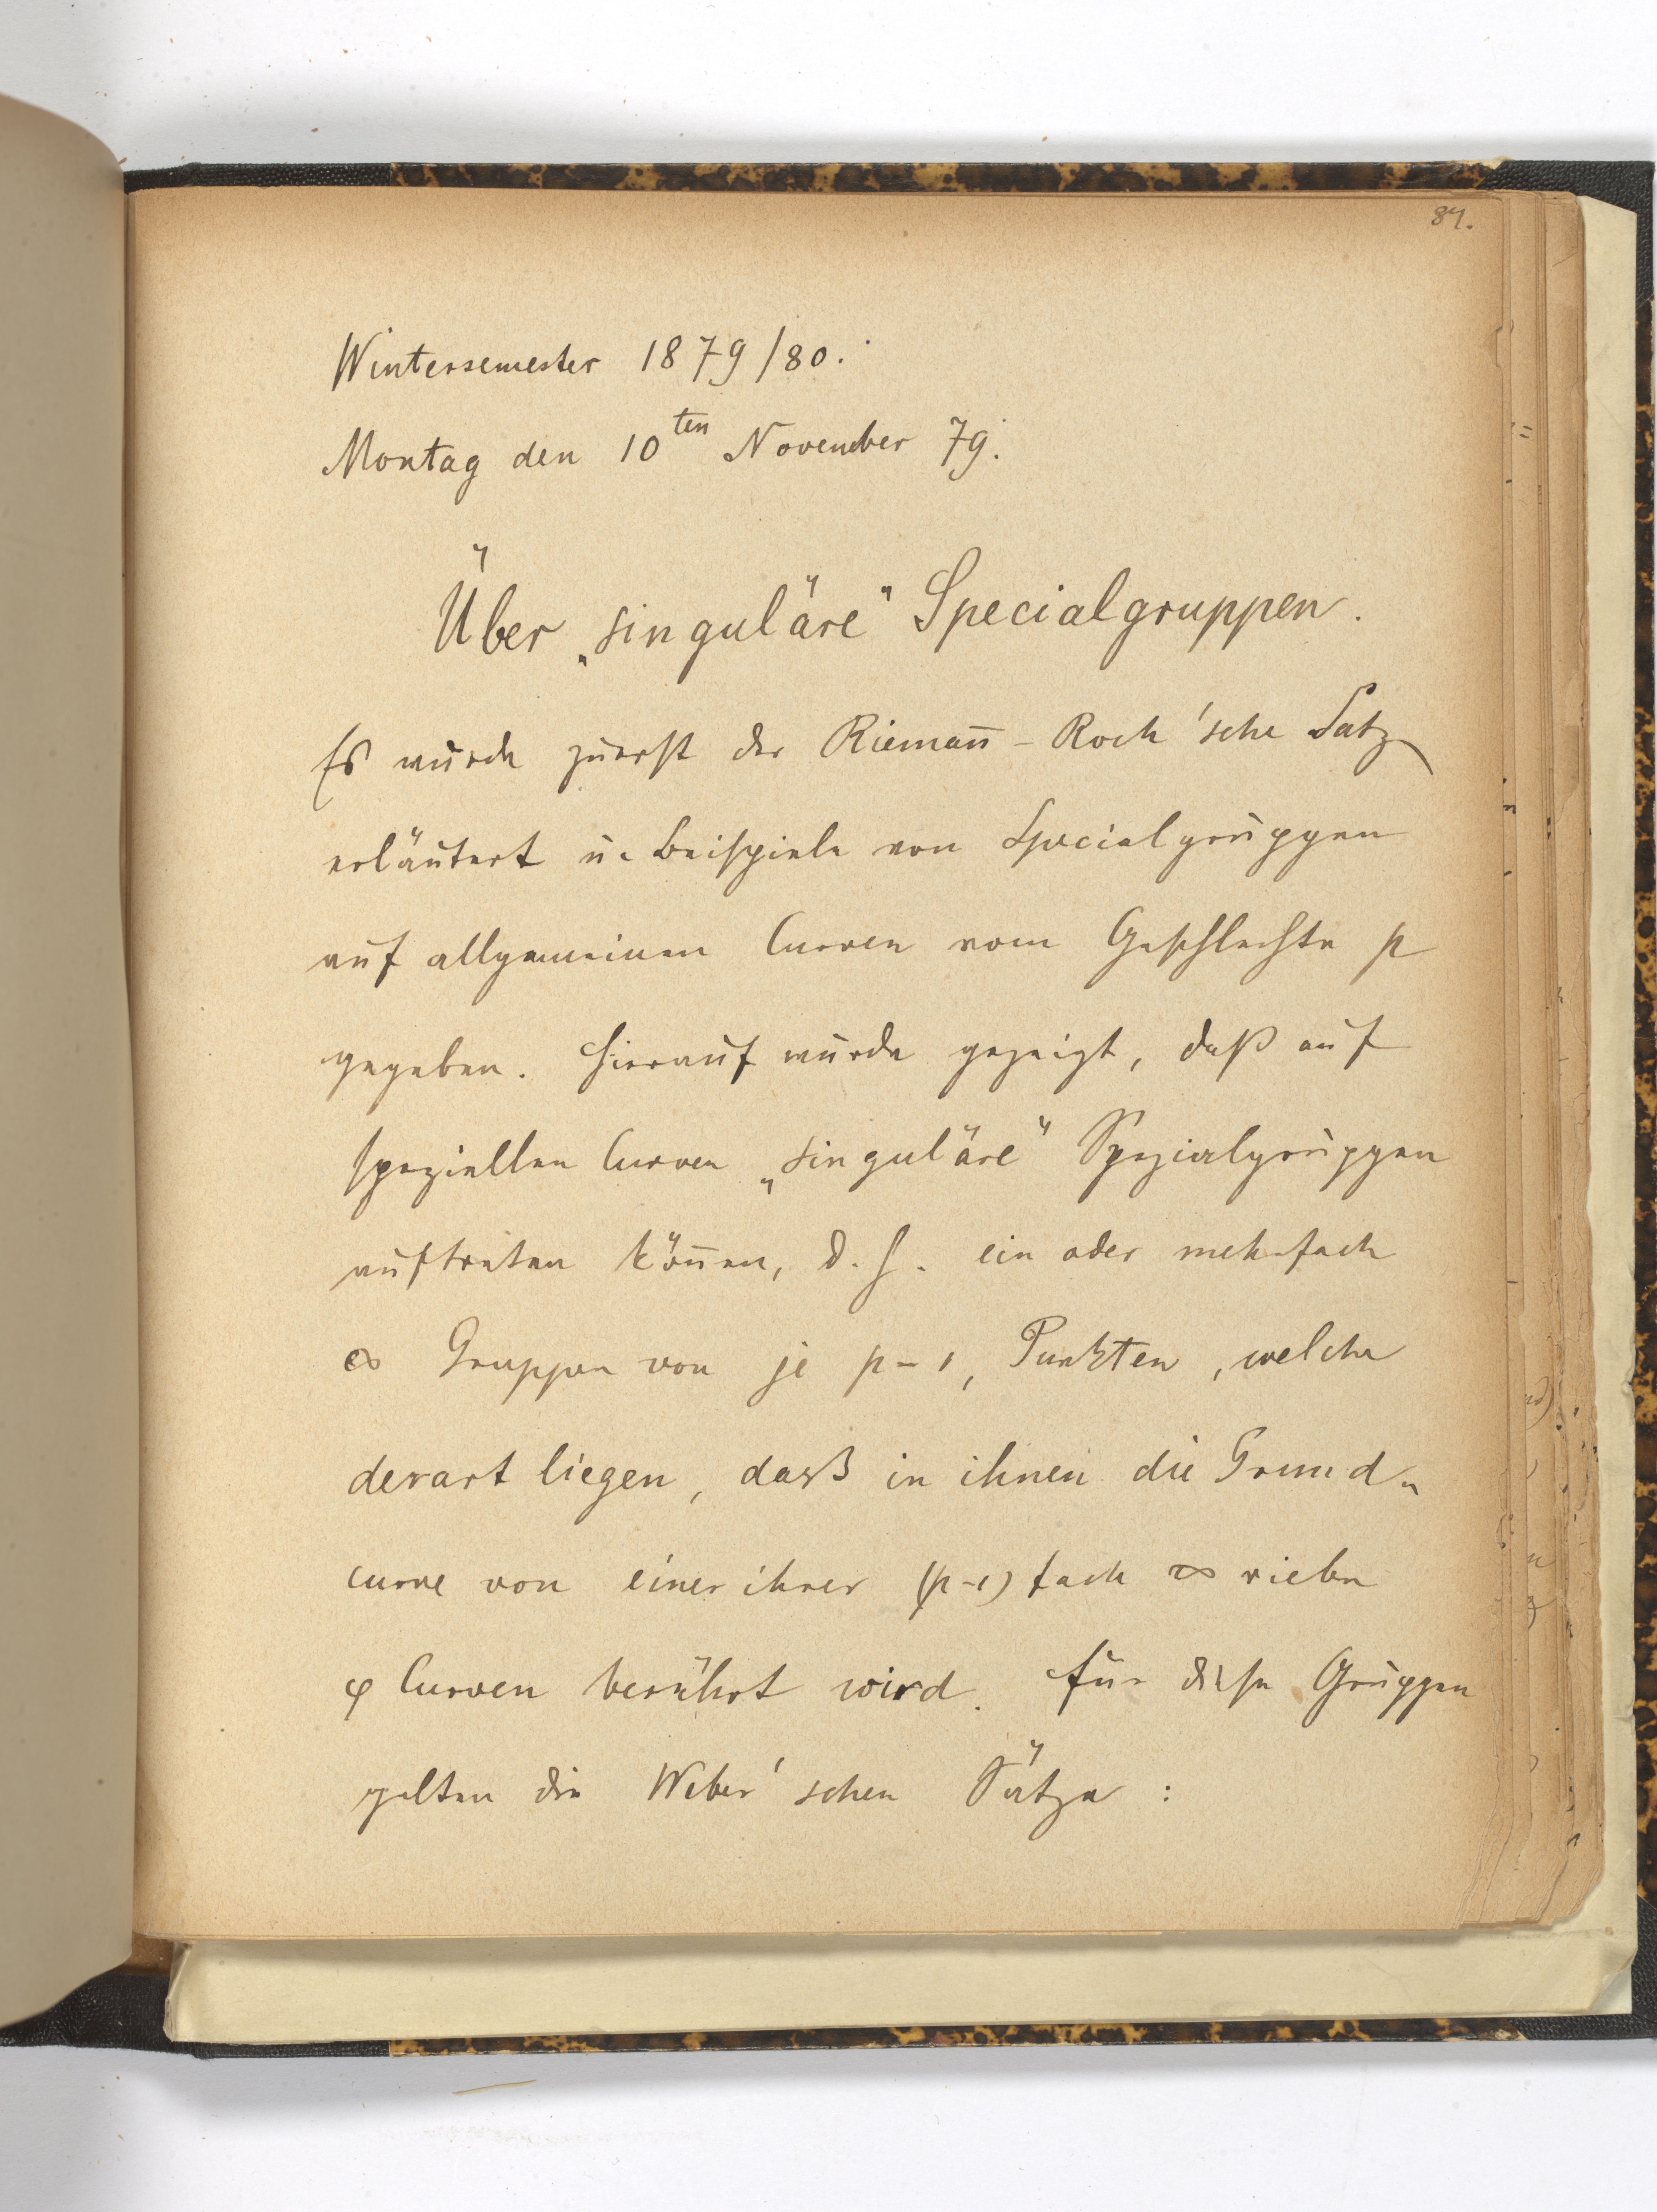 87.
Wintersemester 1879/80.
Montag den 10ten November 79.
Über „singuläre“ Specialgruppen.
Es wurde zuerst der Riemañ-Roch'sche Satz
erläutert u. Beispiele von Specialgruppen
auf allgemeinen Curven vom Geschlechte p
gegeben. Hierauf wurde gezeigt, daß auf
speziellen Curven „singuläre“ Spezialgruppen
auftreten köñen, d. h. ein oder mehrfach
∞ Gruppen von je p-1, Punkten, welche
derart liegen, dass in ihnen die Grund-
curve von einer ihrer (p-1) fach ∞ vielen
φ Curven berührt wird. Für diese Gruppen
gelten die Weber'schen Sätze: